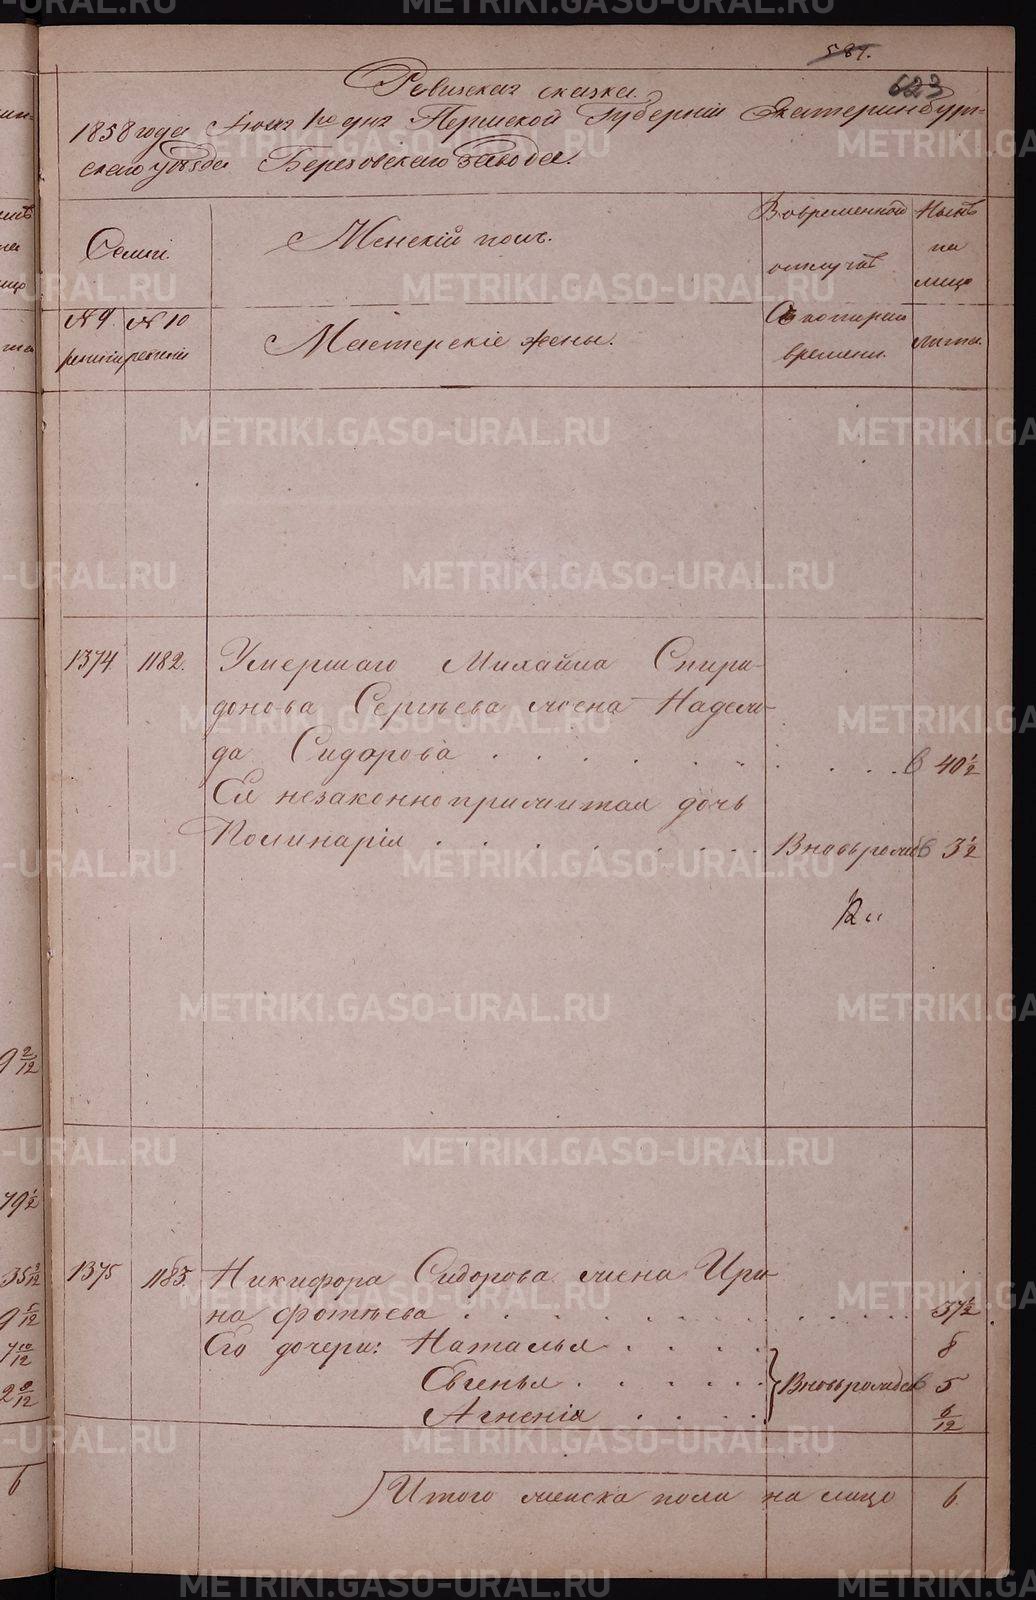 587.
623
Ревизская сказка.
1858 года Іюня 1го дня Пермской Губерніи Екатеринбург-
скаго уѣзда Березовскаго завода.
Семьи.
Женскій полъ.
Во временной
отлучкѣ
Нынѣ
на
лицо
№ 9 № 10
ревизіи ревизіи
Мастерскіе жены.
Съ котораго
времени.
лѣта.
1374 1182. Умершаго Михайла Спири-
донова Сергѣева жена Надеж-
да Сидорова . . . . . . . . 40 1/2
Ея незаконноприжитая дочь
Полинарія . . . . . . . . Вновьрожд 3 1/2
1375 1183. Никифора Сидорова жена Ири-
на Фотѣева . . . . . . . . 37 1/2
Его дочери: Наталья . . . . 8
Евгенья . . . . . . Вновьрожден 5
Агненія . . . . 6/12
Итого женска пола на лицо 6
9 2/12
79 1/2
35 9/12
9 6/12
7 10/12
2 9/12
6
METRIKI.GASO-URAL.RU